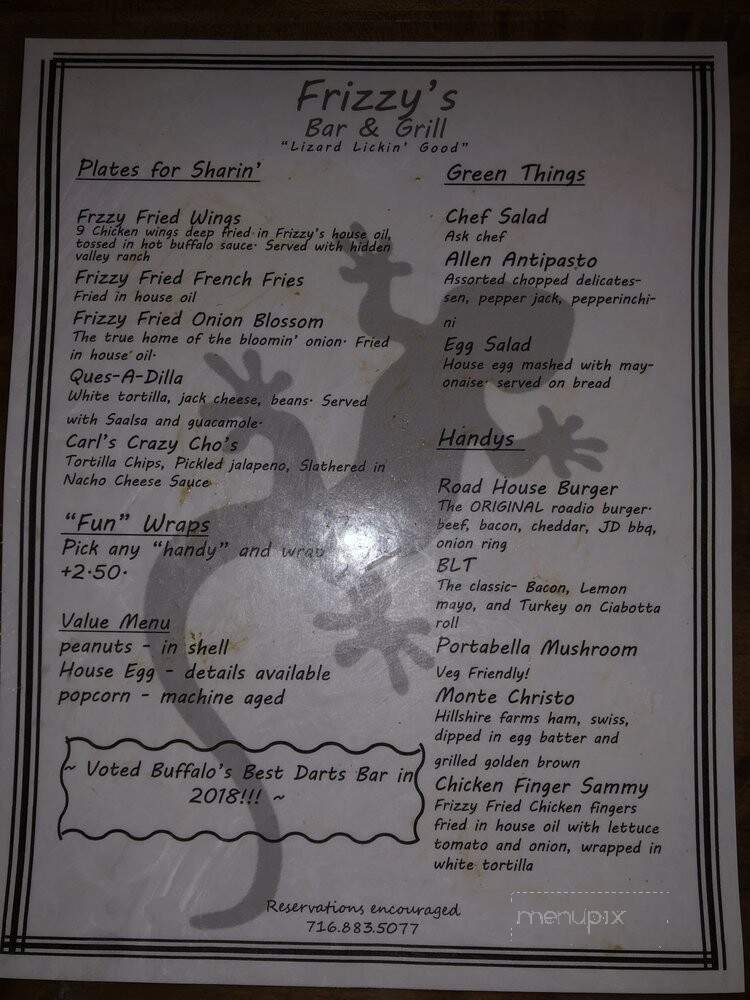 Frizzy's
Bar & Grill
"Lizard Lickin' Good"
Plates for Sharin'
Frzzy Fried Wings
9 Chicken wings deep fried in Frizzy's house oil,
tossed in hot buffalo sauce. Served with hidden
valley ranch
Frizzy Fried French Fries
Fried in house oil
Frizzy Fried Onion Blossom
The true home of the bloomin' onion. Fried
in house oil.
Ques-A-Dilla
White tortilla, jack cheese, beans. Served
with Saalsa and guacamole.
Carl's Crazy Cho's
Tortilla Chips, Pickled jalapeno, Slathered in
Nacho Cheese Sauce
"Fun" Wraps
Pick any "handy" and wrap
+2.50.
Value Menu
peanuts - in shell
House Egg - details available
popcorn - machine aged
~ Voted Buffalo's Best Darts Bar in
2018!!! ~
Green Things
Chef Salad
Ask chef
Allen Antipasto
Assorted chopped delicates-
sen, pepper jack, pepperinchi-
ni
Egg Salad
House egg mashed with may-
onaise. served on bread
Handys
Road House Burger
The ORIGINAL roadio burger.
beef, bacon, cheddar, JD bbq,
onion ring
BLT
The classic- Bacon, Lemon
mayo, and Turkey on Ciabotta
roll
Portabella Mushroom
Veg Friendly!
Monte Christo
Hillshire farms ham, swiss,
dipped in egg batter and
grilled golden brown
Chicken Finger Sammy
Frizzy Fried Chicken fingers
fried in house oil with lettuce
tomato and onion, wrapped in
white tortilla
Reservations encouraged
716.883.5077
menupix